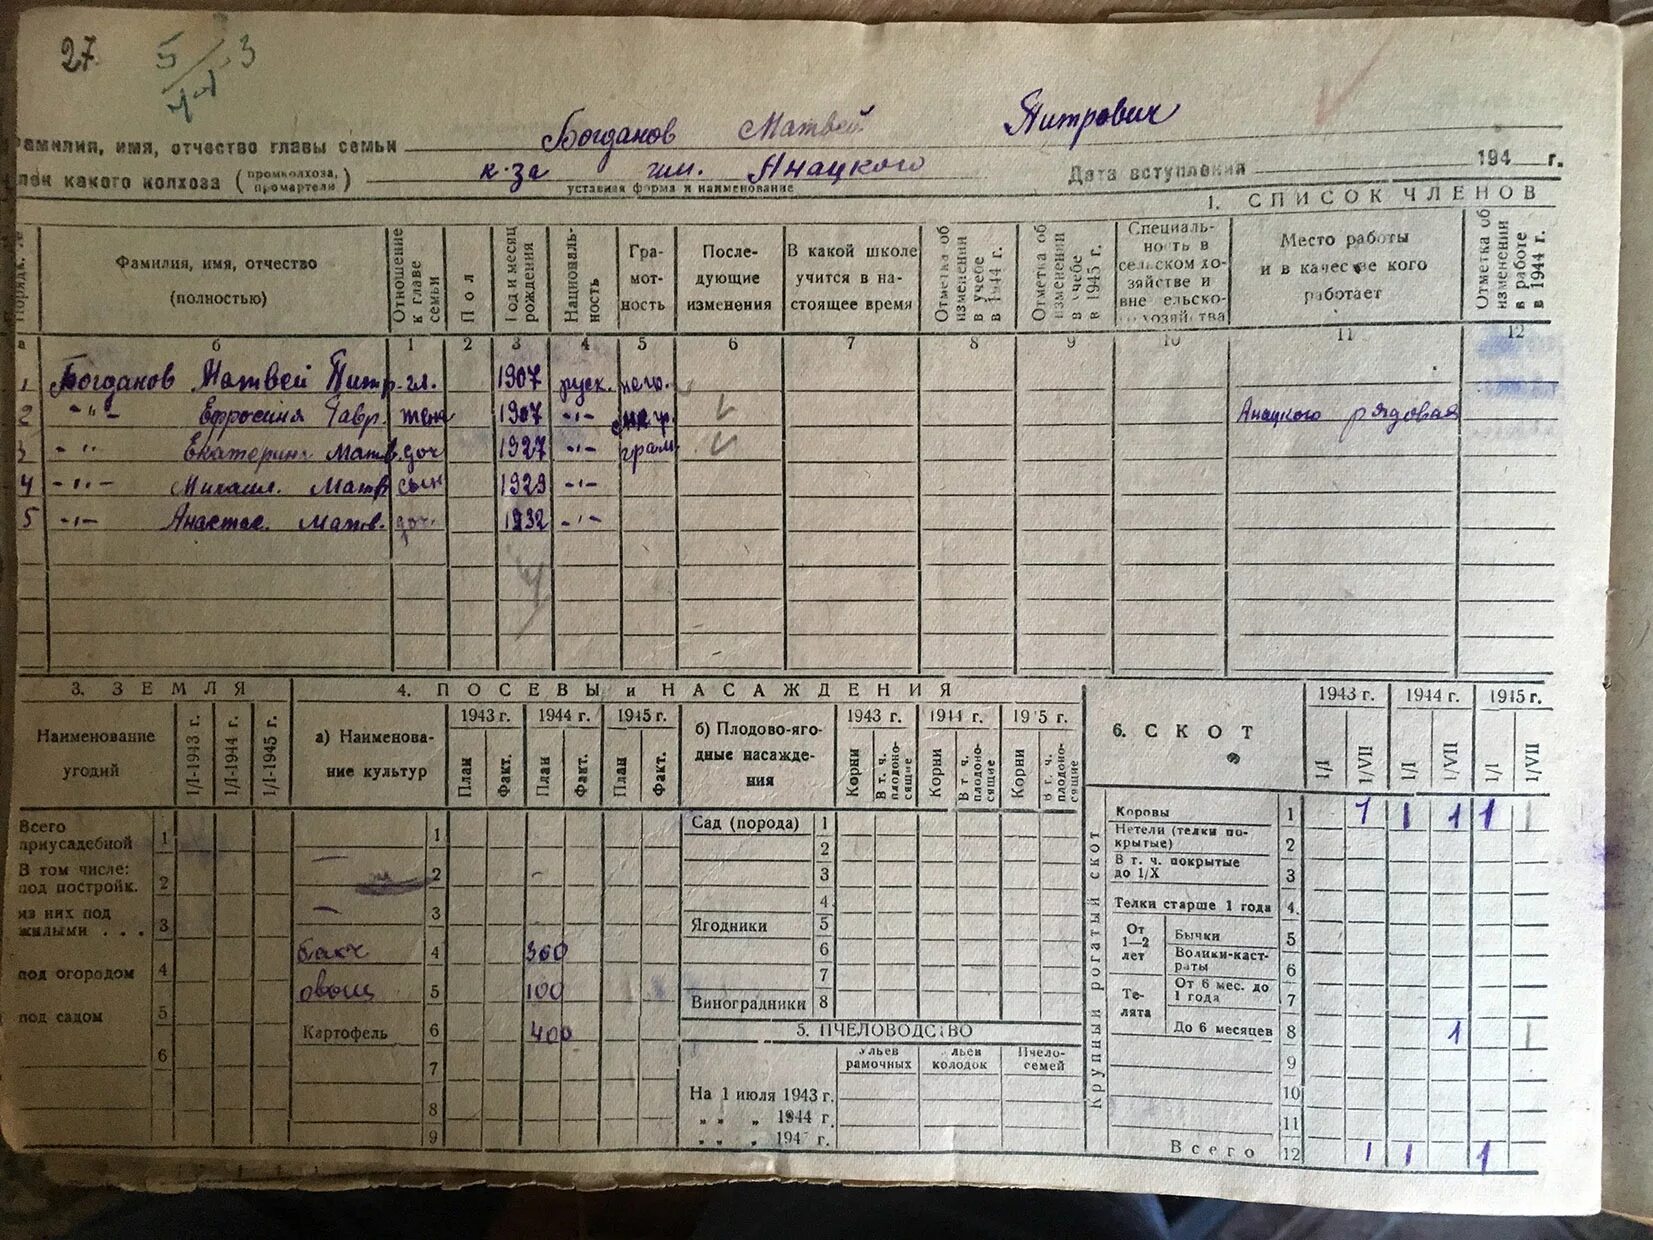 27
5/ 3
Фамилия, имя, отчество главы семьи Богданов Матвей Питрович
Член какого колхоза (промколхоза, промартели) к-за им. Анацкого Дата вступления 194 г.
уставная форма и наименование
1. СПИСОК ЧЛЕНОВ
Порядк. №
Фамилия, имя, отчество (полностью)
Отношение к главе семьи
Пол
Год и месяц рождения
Националь-ность
Гра-мот-ность
После-дующие изменения
В какой школе учится в на-стоящее время
Отметка об изменении в учебе в 1944 г.
Отметка об изменении в учебе в 1945 г.
Специаль-ность в сельском хо-зяйстве и вне сельско-го хозяйства
Место работы и в качестве кого работает
Отметка об изменении в работе в 1944 г.
а б 1 2 3 4 5 6 7 8 9 10 11 12
1 Богданов Матвей Питр. гл. 1907 руск. негр.
2 -"- Ефросиня Гавр. жена 1907 -"- Анацкого рядовая
3 -"- Екатерина Матв. доч 1927 -"- грам
4 -"- Михаил. Матв сын 1929 -"-
5 -"- Анастас. Матв. доч. 1932 -"-
3. ЗЕМЛЯ
Наименование угодий
1/I-1943 г. 1/I-1944 г. 1/I-1945 г.
Всего приусадебной 1
В том числе: под постройк. 2
из них под жилыми . . . 3
под огородом 4
под садом 5
6
4. ПОСЕВЫ и НАСАЖДЕНИЯ
а) Наименова-ние культур
1943 г. 1944 г. 1945 г.
План Факт. План Факт. План Факт.
1
2
3
бахч 4 360
овощ 5 100
Картофель 6 400
7
8
9
б) Плодово-яго-дные насажде-ния
1943 г. 1944 г. 1945 г.
Корни В т. ч. плодоно-сящие Корни В т. ч. плодоно-сящие Корни В т. ч. плодоно-сящие
Сад (порода) 1
2
3
4
Ягодники 5
6
7
Виноградники 8
5. ПЧЕЛОВОДСТВО
Ульев рамочных Ульев колодок Пчело-семей
На 1 июля 1943 г.
„ „ „ 1944 г.
„ „ „ 194 г.
6. СКОТ
1943 г. 1944 г. 1945 г.
1/I 1/VII 1/I 1/VII 1/I 1/VII
Крупный рогатый скот
Коровы 1 1 1 1 1 1
Нетели (телки по-крытые) 2
В т. ч. покрытые до 1/X 3
Телки старше 1 года 4
От 1—2 лет
Бычки 5
Волики-каст-раты 6
Те-лята
От 6 мес. до 1 года 7
До 6 месяцев 8 1 1
9
10
11
Всего 12 1 1 1